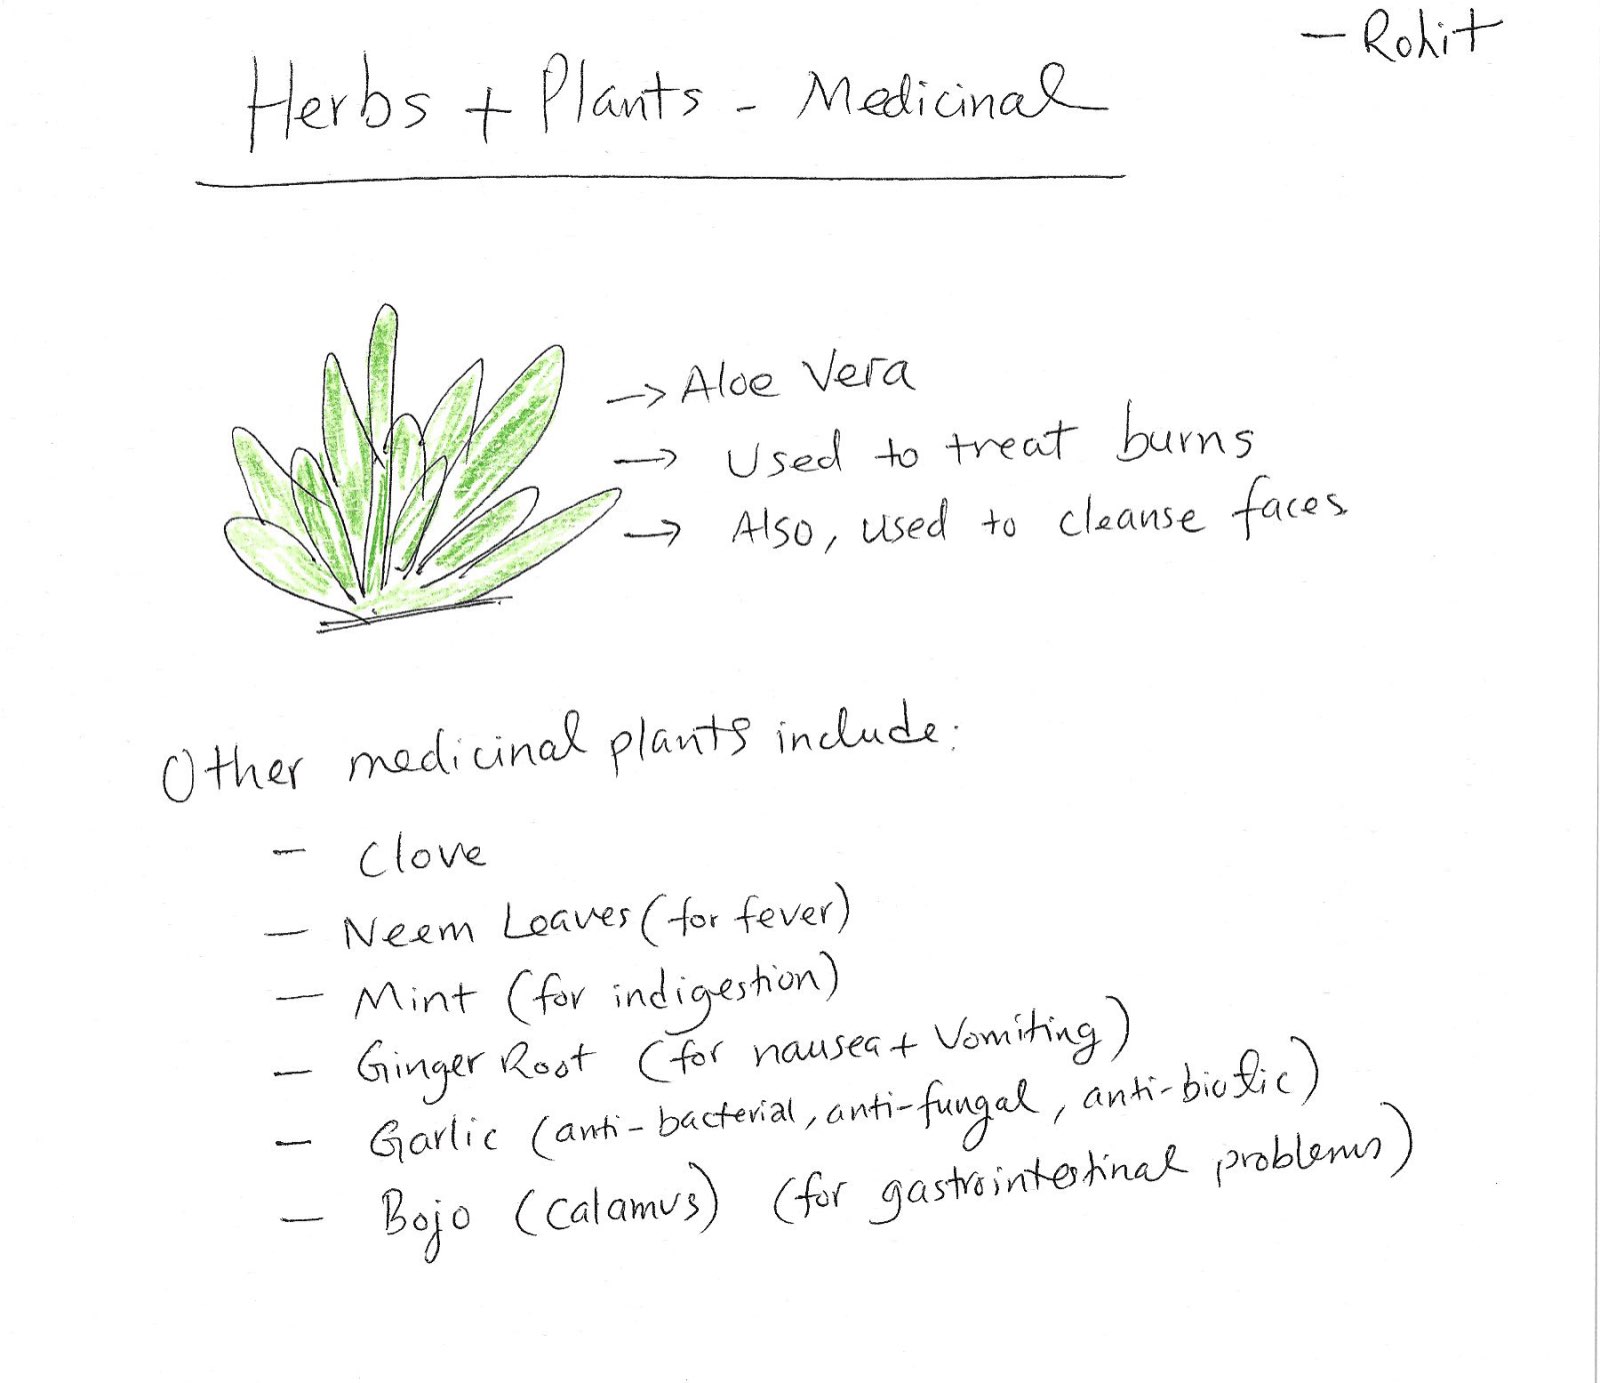 — Rohit
Herbs + Plants - Medicinal
→ Aloe Vera
→ Used to treat burns
→ Also, used to cleanse faces
Other medicinal plants include:
— Clove
— Neem Leaves (for fever)
— Mint (for indigestion)
— Ginger Root (for nausea + Vomiting)
— Garlic (anti-bacterial, anti-fungal, anti-biotic)
— Bojo (Calamus) (for gastrointestinal problems)